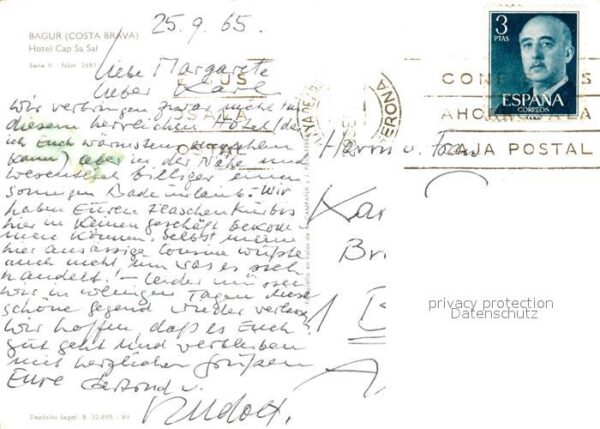 25.9.65.
BAGUR (COSTA BRAVA)
Hotel Cap Sa Sal
Serie II - Núm. 2683
3
PTAS
ESPAÑA
CORREOS
GERONA
CAJA POSTAL
Liebe Margarete
Lieber Karl
Wir verbringen zwar nicht in
diesem herrlichen Hotel (das
ich Euch wärmstens
kann) aber in der Nähe und
wesentlich billiger einen
sonnigen Badeurlaub. Wir
haben Euren Flaschenkürbis
hier in keinem Geschäft bekom
men können. Selbst meine
hier ansässige Cousine wußte
auch nicht um was es sich
handelt! - Leider müssen
wir in wenigen Tagen diese
schöne Gegend wieder verlassen
Wir hoffen, daß es Euch
gut geht und verbleiben
mit herzlichen Grüßen
Eure Gertrud u.
Rudolf.
Herrn u. Frau
Kar
Br
privacy protection
Datenschutz
Depósito Legal. B. 22.890 - VII